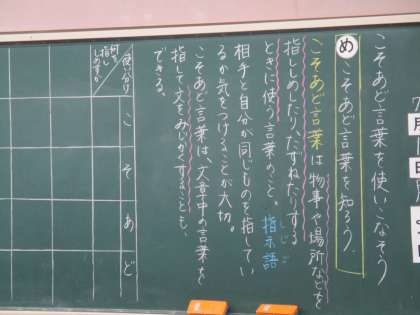 こそあど言葉を使いこなそう
め こそあど言葉を知ろう。
こそあど言葉は物事や場所などを
指ししめしたり、たずねたりする
ときに使う言葉のこと。指示語
しじご
相手と自分が同じものを指してい
るか気をつけることが大切。
こそあど言葉は、文章中の言葉を
指して文をみじかくすることも、
できる。
使い分け
何を指ししめすか
こ
そ
あ
ど